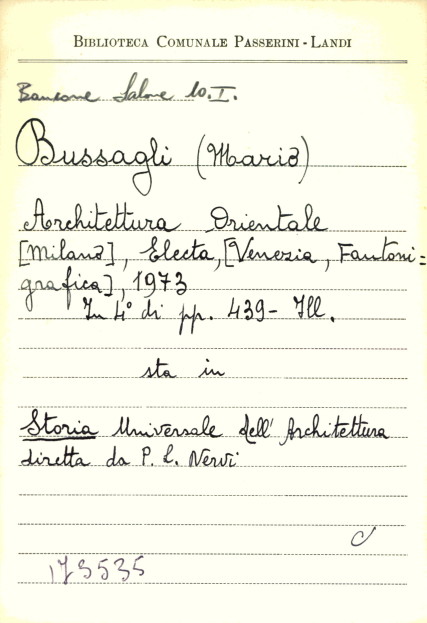 BIBLIOTECA COMUNALE PASSERINI - LANDI
Bancone Salone 10.I.
Bussagli (Mario)
Architettura Orientale
[Milano], Electa, [Venezia, Fantoni=
grafica], 1973
In 4° di pp. 439 - Ill.
sta in
Storia Universale dell' Architettura
diretta da P. L. Nervi
173535